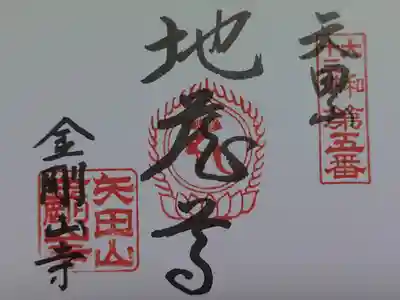 矢田山
大和
第五番
地蔵尊
金剛山寺
矢田山